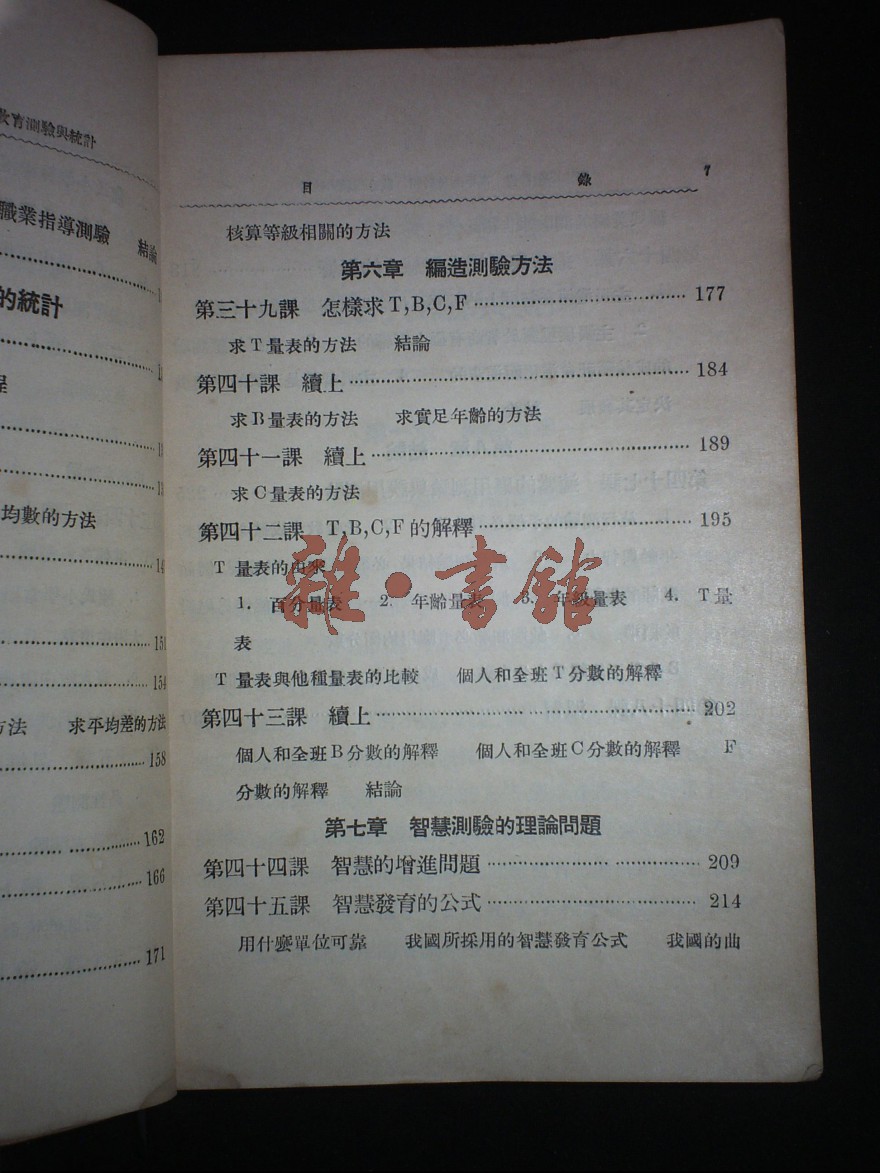 教育測驗與統計
職業指導測驗 結論
的統計
程
均數的方法
14
151
154
方法 求平均差的方法
158
162
166
171
目 錄 7
核算等級相關的方法
第六章 編造測驗方法
第三十九課 怎樣求T,B,C,F 177
求T量表的方法 結論
第四十課 續上 184
求B量表的方法 求實足年齡的方法
第四十一課 續上 189
求C量表的方法
第四十二課 T,B,C,F的解釋 195
T量表的由來
1. 百分量表 2. 年齡量表 3. 年級量表 4. T量
表
T量表與他種量表的比較 個人和全班T分數的解釋
第四十三課 續上 202
個人和全班B分數的解釋 個人和全班C分數的解釋 F
分數的解釋 結論
第七章 智慧測驗的理論問題
第四十四課 智慧的增進問題 209
第四十五課 智慧發育的公式 214
用什麼單位可靠 我國所採用的智慧發育公式 我國的曲
雜·書館